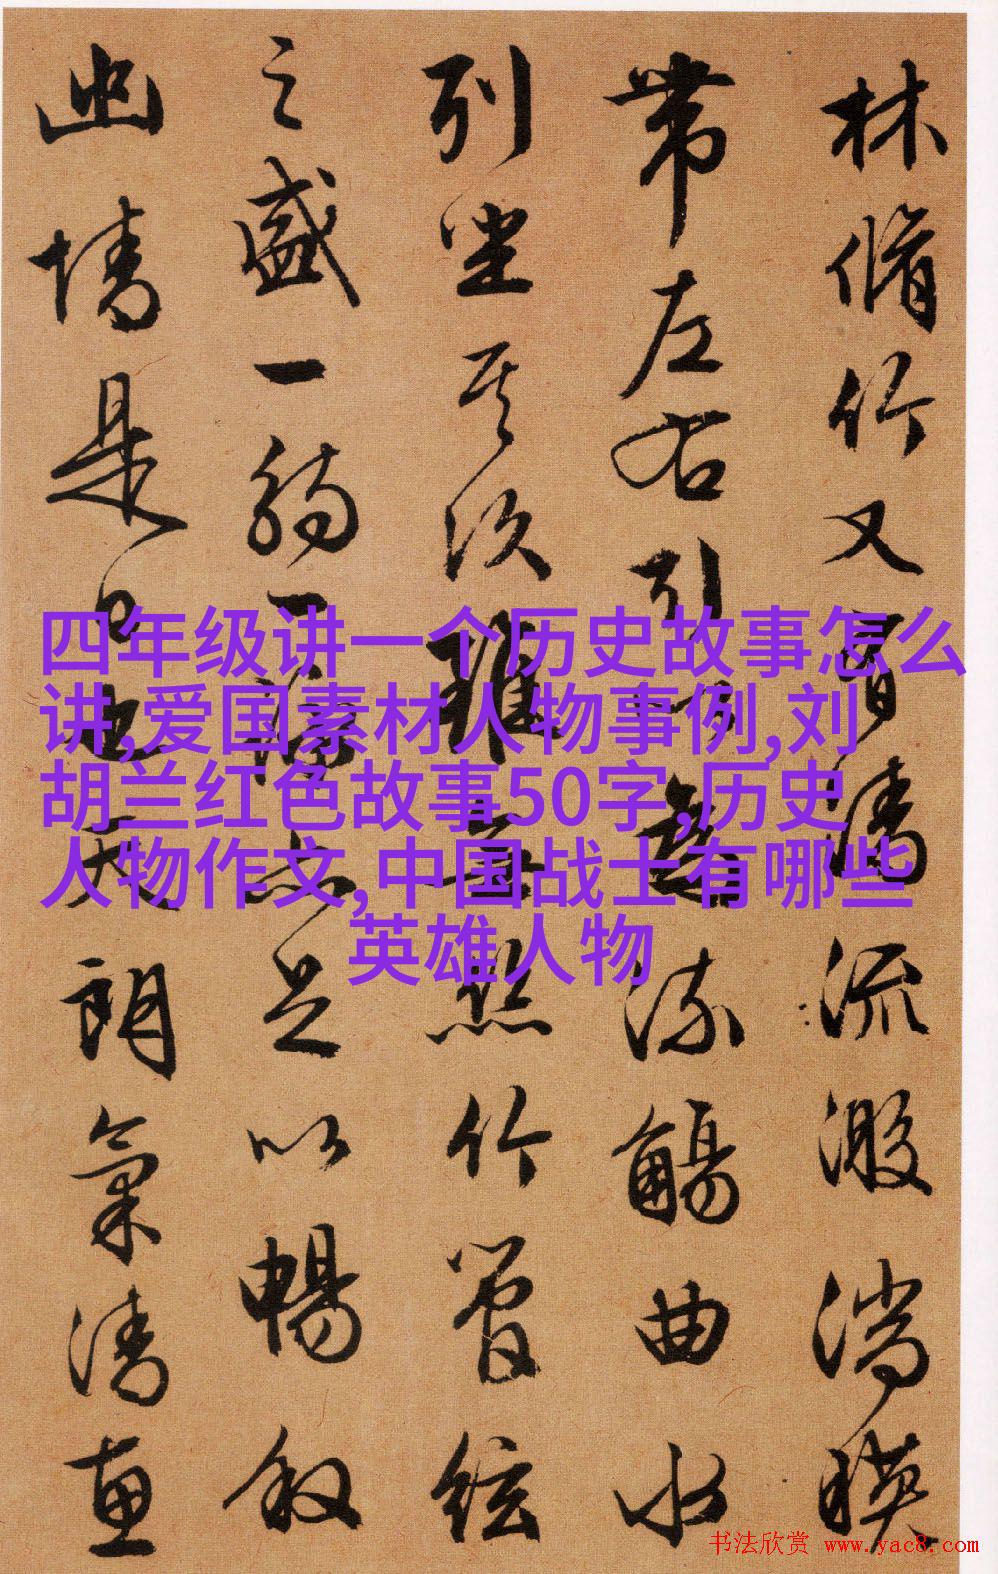 林脩竹又有清流激湍映
帶左右引以為流觴曲水
列坐其次雖無絲竹管絃
之盛一觴一詠亦足以暢敘
幽情是日也天朗氣清惠
四年级讲一个历史故事怎么
讲,爱国素材人物事例,刘
胡兰红色故事50字,历史
人物作文,中国战士有哪些
英雄人物
书法欣赏 www.yac8.com